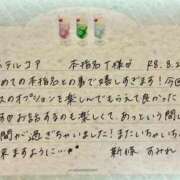 ホテルコア 本指名T様が R8.8.2
めての本指名との事で嬉しすぎます！今回
スのオプションを楽しんでもらえて良かった
るトークもすごく楽しくて、あっという間に
間が過ぎちゃいました！またいちゃいちゃ
来ますように…♡ 新條 すみれ